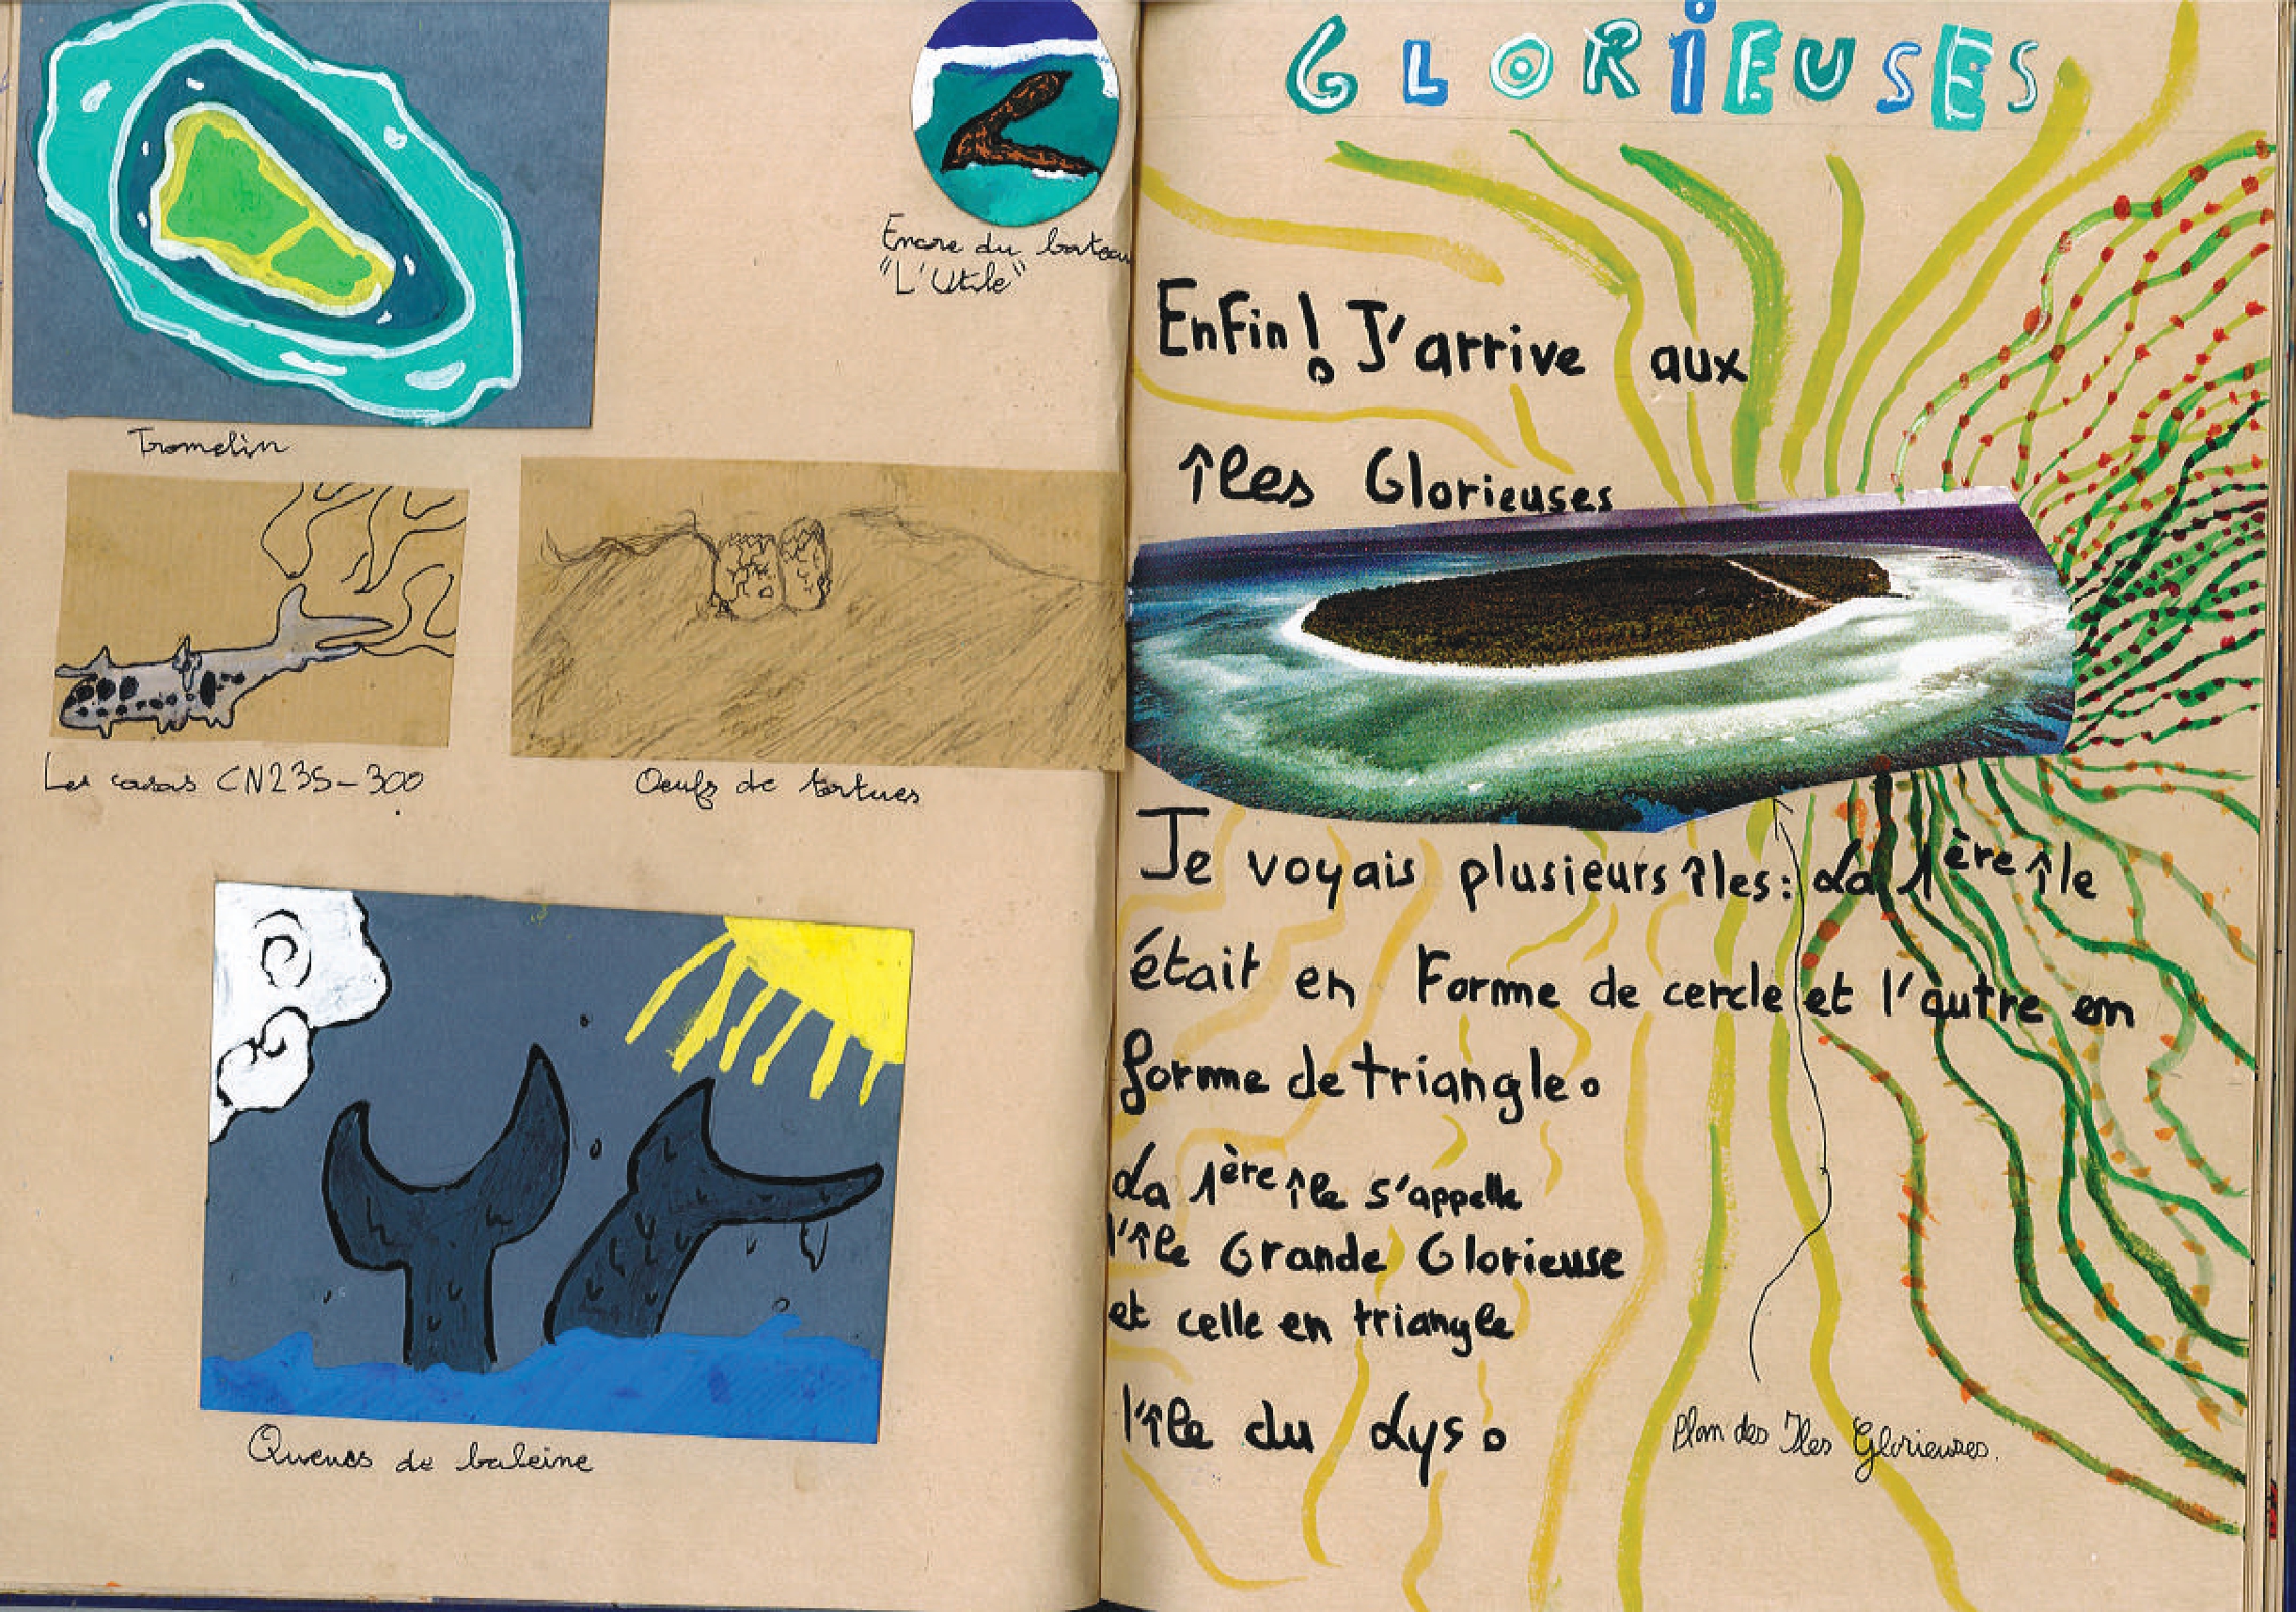 Tromelin
Encre du bateau
"L'Utile"
Les casas CN235-300
Oeufs de tortues
Queues de baleine
GLORIEUSES
Enfin! J'arrive aux
îles Glorieuses
Je voyais plusieurs îles: La 1ère île
était en Forme de cercle et l'autre en
forme de triangle.
La 1ère île s'appelle
l'île Grande Glorieuse
et celle en triangle
l'île du Lys.
Plan des Iles Glorieuses.